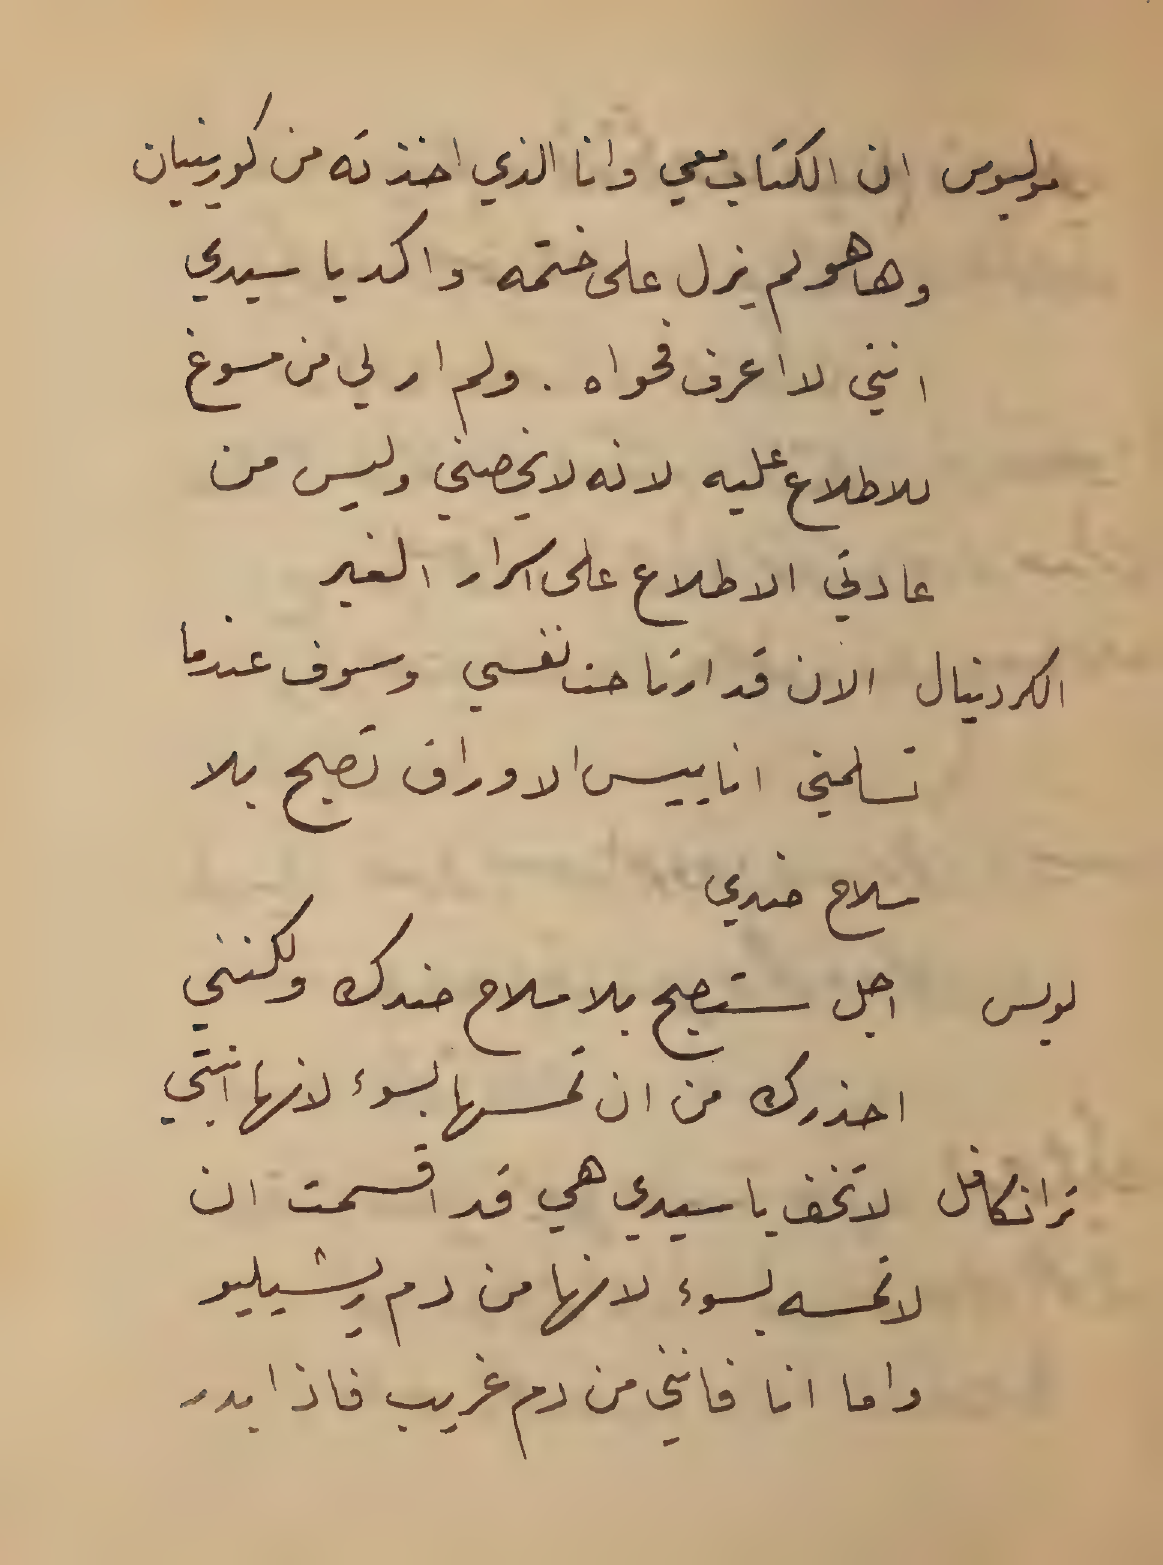 موليوس ان الكتاب معي وانا الذي اخذته من كورينيان
وها هو لم يزل على ختمه واكد يا سيدي
انني لا اعرف فحواه . ولم ار لي من مسوغ
للاطلاع عليه لانه لا يخصني وليس من
عادتي الاطلاع على اسرار الغير
الكردينال الان قد ارتاحت نفسي وسوف عندما
تسلمني اناييس الاوراق تصبح بلا
سلاح ضدي
لويس اجل ستصبح بلا سلاح ضدك ولكنني
احذرك من ان تمسها بسوء لانها ابنتي
ترانكافل لا تخف يا سيدي هي قد اقسمت ان
لا تمسه بسوء لانها من دم ريشيليو
واما انا فانني من دم غريب فاذا بدر